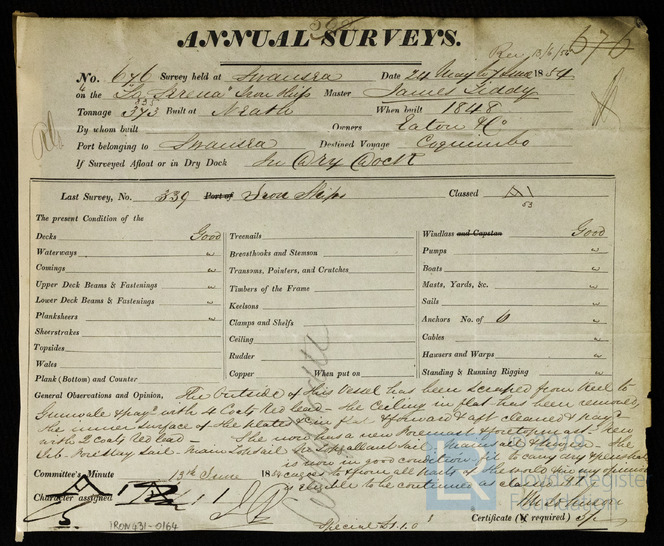 ANNUAL SURVEYS.
676
No. 676 Survey held at Swansea Date 24 May to 7 June 1854
on the "La Serena" Iron Ship Master James Leddy
Tonnage 373 Built at Neath When built 1848
By whom built Owners Eaton & Co
Port belonging to Swansea Destined Voyage Coquimbo
If Surveyed Afloat or in Dry Dock In Dry Dock
Last Survey, No. 339 Port of Iron Ships Classed A1
53
The present Condition of the
Decks Good
Waterways "
Comings "
Upper Deck Beams & Fastenings "
Lower Deck Beams & Fastenings "
Planksheers "
Sheerstrakes
Topsides
Wales
Plank (Bottom) and Counter
Treenails
Breasthooks and Stemson
Transoms, Pointers, and Crutches
Timbers of the Frame
Keelsons
Clamps and Shelfs
Ceiling
Rudder
Copper When put on
Windlass and Capstan Good
Pumps "
Boats "
Masts, Yards, &c. "
Sails "
Anchors No. of 6 "
Cables "
Hawsers and Warps "
Standing & Running Rigging "
General Observations and Opinion, The Outside of this Vessel has been scraped from Keel to
Gunwale & payd with 4 Coats Red Lead - the Ceiling in flat has been removed,
the inner surface of the plates in flat & forward & aft cleaned & payd
with 2 coats Red Lead - She now has a new Foremast & new
Jib. Foretopsail - Main topsail
is now in good condition fit to carry dry & perishable
cargoes to & from all parts of the world & in my opinion
eligible to be continued as classed A1
Committee's Minute 13th June 1854
Character assigned A1
IRON431-0164
Special
Certificate (if required)
© 2019
Lloyd's Register
Foundation
LR